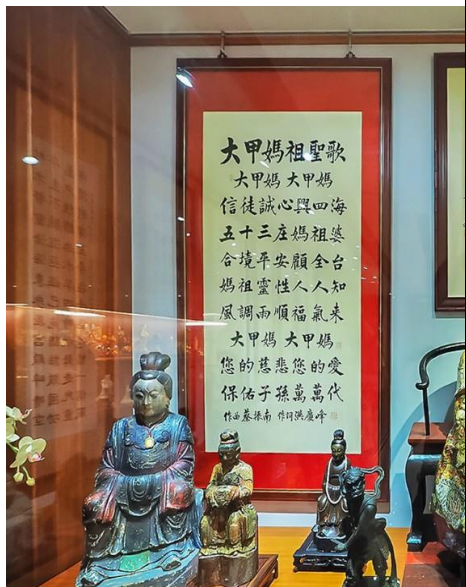 大甲媽祖聖歌
大甲媽 大甲媽
信徒誠心興四海
五十三庄媽祖婆
合境平安顧全台
媽祖靈性人人知
風調雨順福氣来
大甲媽 大甲媽
您的慈悲您的愛
保佑子孫萬萬代
作曲蔡振南 作詞洪慶峰